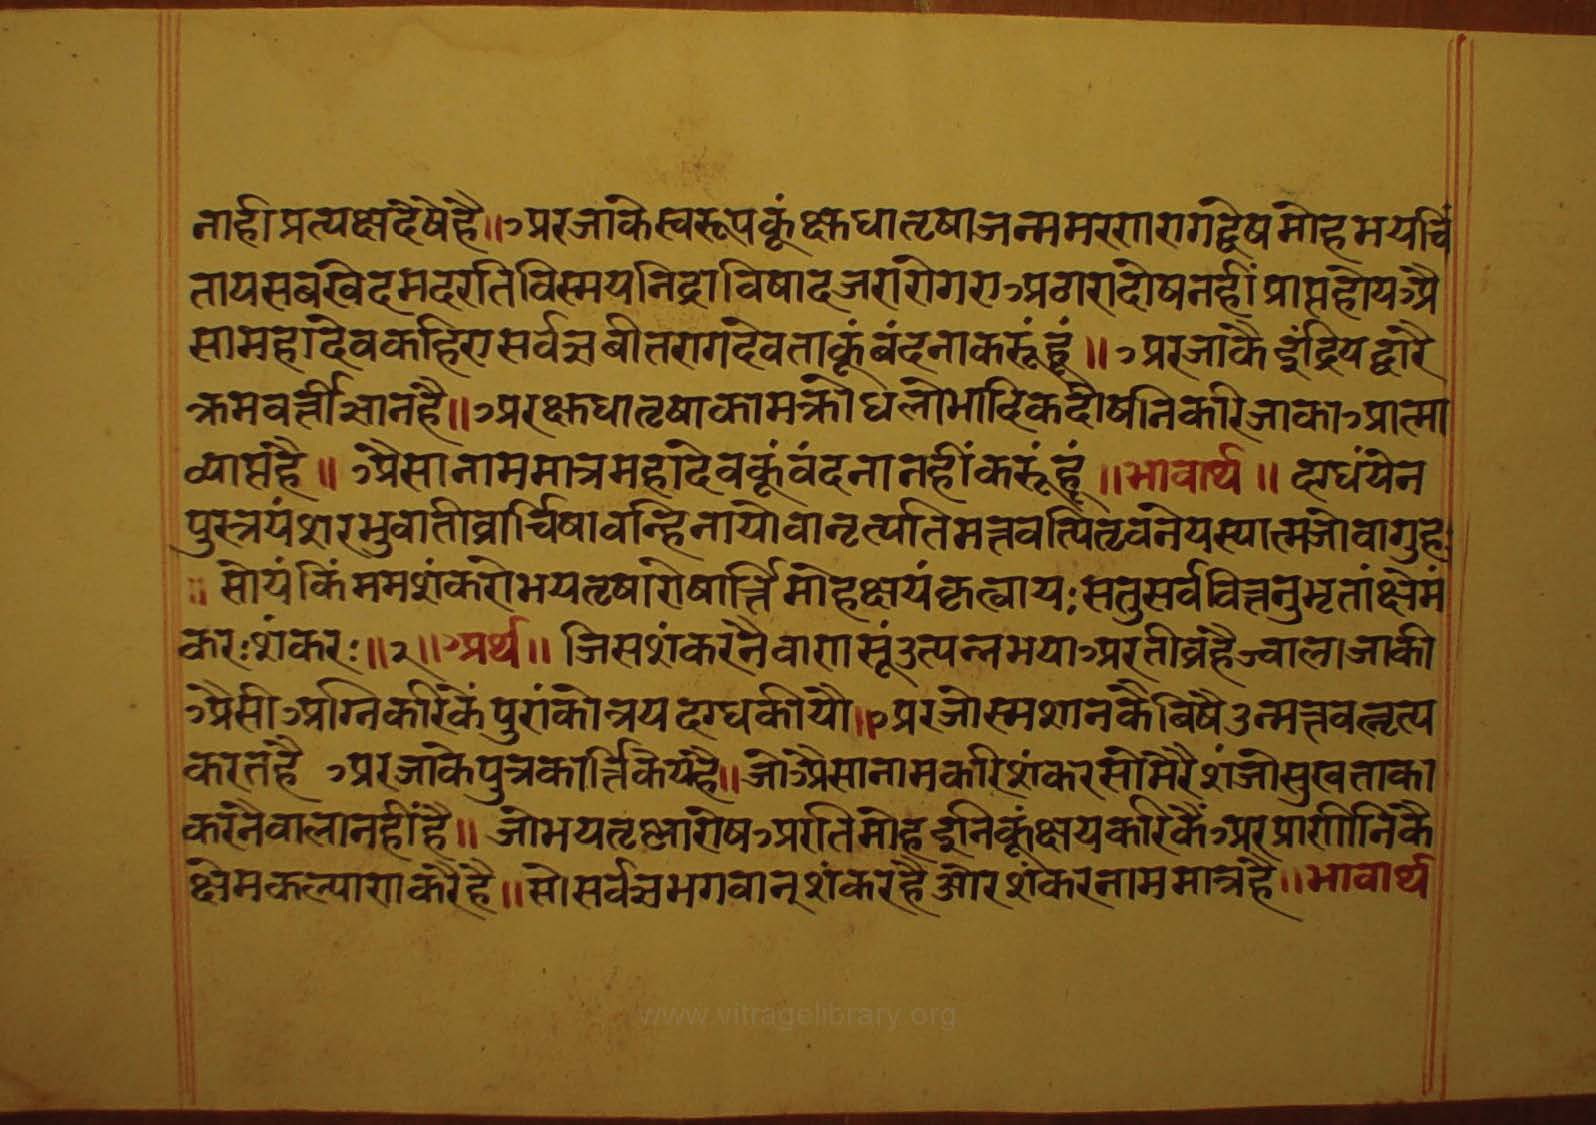 नाही प्रत्यक्ष देषै है॥ अर जाके स्वरूपकूं क्षुधा तृषा जन्म मरण राग द्वेष मोह मय चिं
ता य सब खेद मद रति विस्मय निद्रा विषाद जरा रोग ए अठारा दोष नहीं प्राप्त होय अै
सा महादेव कहिए सर्वज्ञ बीतराग देवताकूं बंदना करूं हूं॥ अर जाकै इंद्रिय द्वारै
क्रमवर्त्ती ज्ञान है॥ अर क्षुधा तृषा काम क्रोध लोभादिक दोषनि करि जाका आत्मा
व्याप्त है॥ अैसा नाम मात्र महादेवकूं वंदना नहीं करूं हूं॥ भावार्थ॥ दग्धं येन
पुरत्रयं शरभुवा तीव्रार्चिषा वन्हिना यो वा नृत्यति मत्तवत्पितृवने यस्यात्मजो वा गुहः
॥ सोयं किं मम शंकरो भय तृषा रोषार्त्ति मोह क्षयं कृत्वा यः स तु सर्ववित्तनुभृतां क्षेमं
करः शंकरः॥२॥ अर्थ॥ जिस शंकरनै वाणसूं उत्पन्न भया अर तीव्र है ज्वाला जाकी
अैसी अग्नि करिकैं पुरांको त्रय दग्ध कीयौ॥ अर जो स्मशानकै बिषै उन्मत्तवत् नृत्य
करत है अर जाके पुत्र कार्त्तिकेय है॥ जो अैसा नाम करि शंकर सो मेरै शं जो सुख ताका
करनैवाला नहीं है॥ जो भय तृष्णा रोष अरति मोह इनिकूं क्षय करिकैं अर प्राणीनिकै
क्षेम कल्याण करै है॥ सो सर्वज्ञ भगवान् शंकर है और शंकर नाम मात्र है॥ भावार्थ
www.vitragelibrary.org